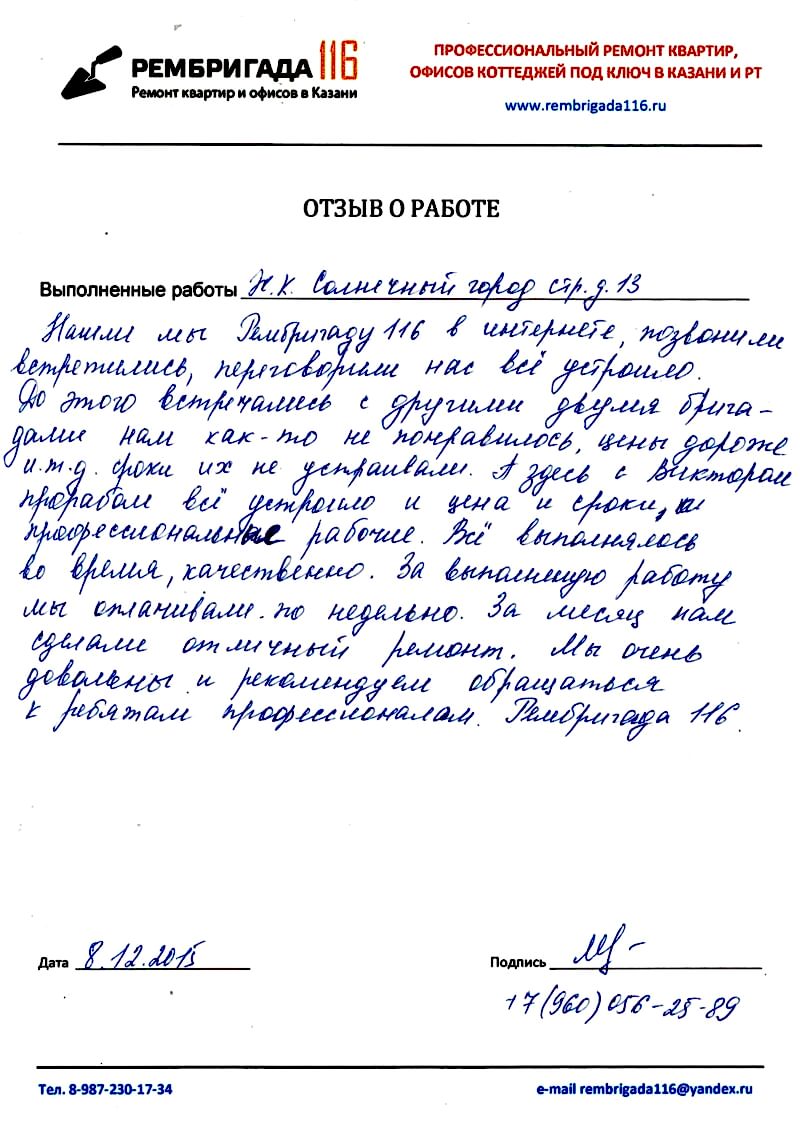 РЕМБРИГАДА 116
Ремонт квартир и офисов в Казани
ПРОФЕССИОНАЛЬНЫЙ РЕМОНТ КВАРТИР,
ОФИСОВ КОТТЕДЖЕЙ ПОД КЛЮЧ В КАЗАНИ И РТ
www.rembrigada116.ru
ОТЗЫВ О РАБОТЕ
Выполненные работы Ж.К. Солнечный город стр.д. 13
Нашли мы Рембригаду 116 в интернете, позвонили
встретились, переговорили нас всё устроило.
До этого встречались с другими двумя брига-
дами нам как-то не понравилось, цены дороже
и.т.д. сроки их не устраивали. А здесь с Виктором
прорабом всё устроило и цена и сроки, и
профессиональные рабочие. Всё выполнялось
во время, качественно. За выполнную работу
мы оплачивали по недельно. За месяц нам
сделали отличный ремонт. Мы очень
довольны и рекомендуем обращаться
к ребятам профессионалам. Рембригада 116.
Дата 8.12.2015
Подпись
+7(960)056-25-89
Тел. 8-987-230-17-34
e-mail rembrigada116@yandex.ru